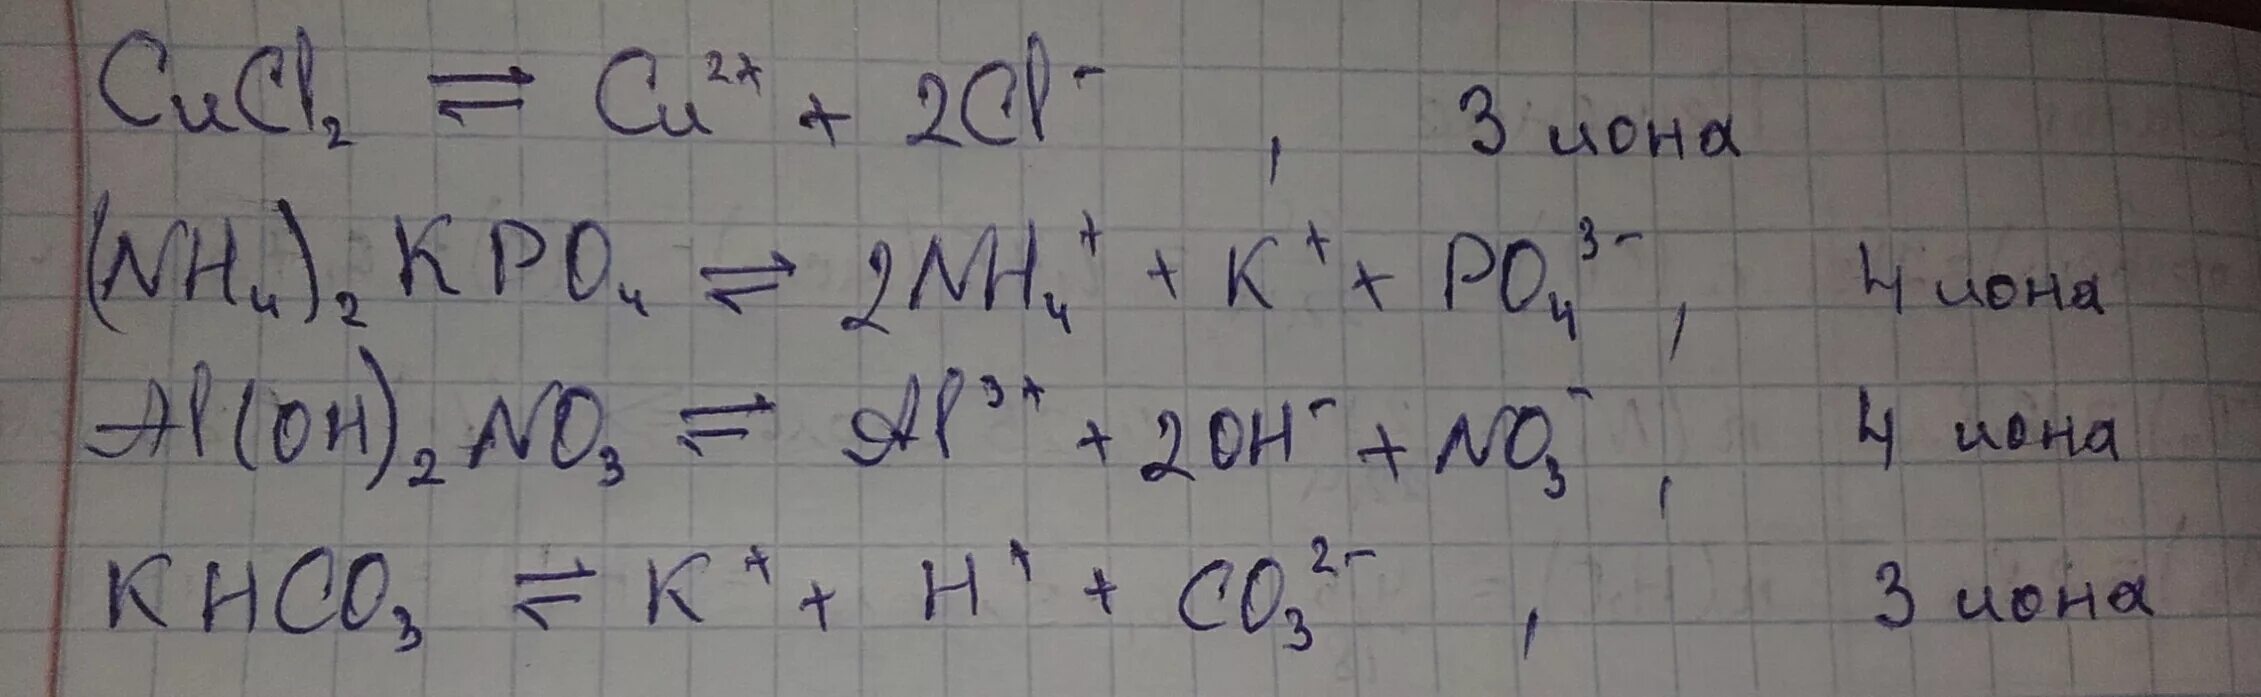 CuCl₂ ⇌ Cu²⁺ + 2Cl⁻ , 3 иона
(NH₄)₂KPO₄ ⇌ 2NH₄⁺ + K⁺ + PO₄³⁻, 4 иона
Al(OH)₂NO₃ ⇌ Al³⁺ + 2OH⁻ + NO₃⁻ , 4 иона
KHCO₃ ⇌ K⁺ + H⁺ + CO₃²⁻ , 3 иона